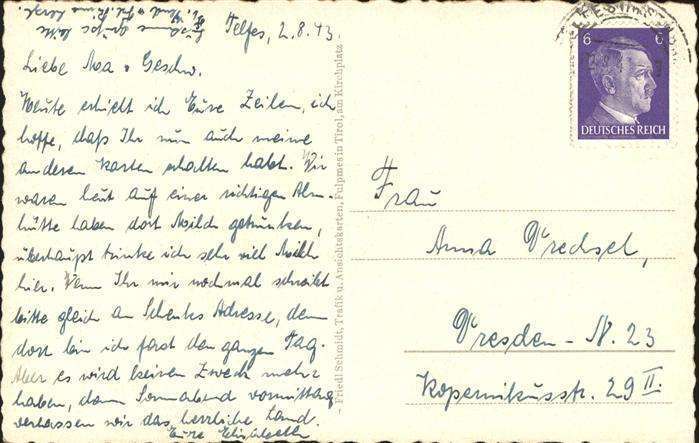 Telfes, 2.8.43.
Liebe Mama u. Geschw.
Heute erhielt ich Eure Zeilen, ich
hoffe, daß Ihr nun auch meine
anderen Karten erhalten habt. Wir
waren heut auf einer richtigen Alm-
hütte haben dort Milch getrunken,
überhaupt trinke ich sehr viel Milch
hier. Wenn Ihr mir nochmal schreibt
bitte gleich an Schenks Adresse, denn
dort bin ich fast den ganzen Tag.
Aber es wird keinen Zweck mehr
haben, denn Sonnabend vormittag
verlassen wir das herrliche Land.
Eure Elisabeth
Friedl Schmidt, Trafik u. Ansichtskarten, Fulpmes in Tirol, am Kirchplatz
6 6
DEUTSCHES REICH
Frau
Anna Drechsel,
Dresden - N. 23
Kopernikusstr. 29 II.